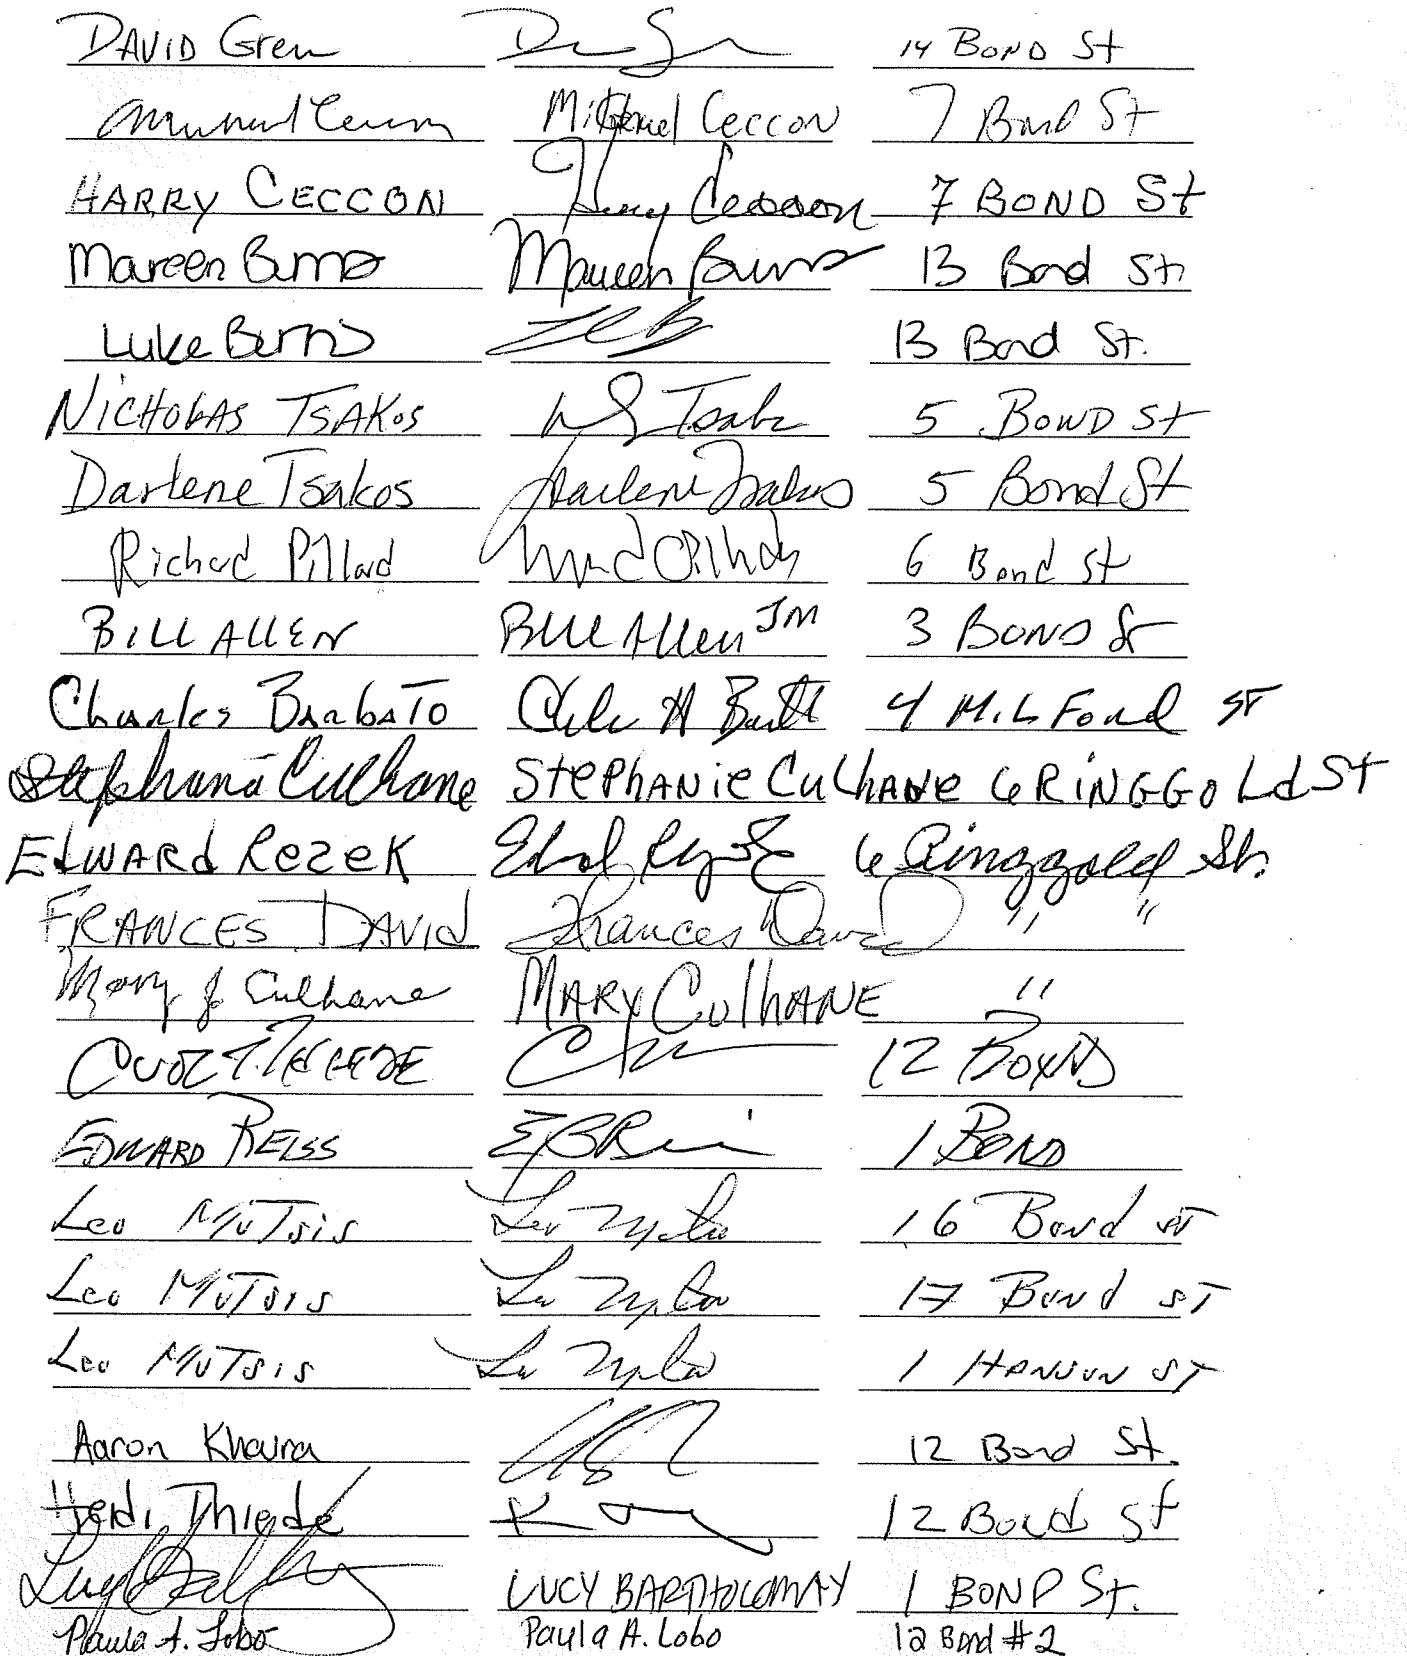 DAVID Gren 14 BOND St
Michael Ceccon 7 Bond St
HARRY CECCON Harry Ceccon 7 BOND St
Maureen Burns Maureen Burns 13 Bond St.
Luke Burns 13 Bond St.
NICHOLAS TSAKOS Tsakos 5 BOND St
Darlene Tsakos Darlene Tsakos 5 Bond St
Richard Pillard 6 Bond St
BILL ALLEN Bill Allen JM 3 BOND St
Charles BarbaTO 4 MilFord ST
Stephanie Culhane StePHANie CuLhANe 6 RiNGGoLd St
EdWARd Rezek 6 Ringgold St.
FRANCES DAVId Frances David " "
Mary J Culhane MARY CulhANE "
12 BOND
EDWARD REISS 1 BOND
Leo MUTSIS 16 Bond ST
Leo MUTSIS 17 Bond ST
Leo MUTSIS 1 HANSON ST
Aaron Khaura 12 Bond St.
Heidi Thiede 12 Bond St
LUCY BARTHOLOMAY 1 BOND St.
Paula A. Lobo Paula A. Lobo 12 Bond #2